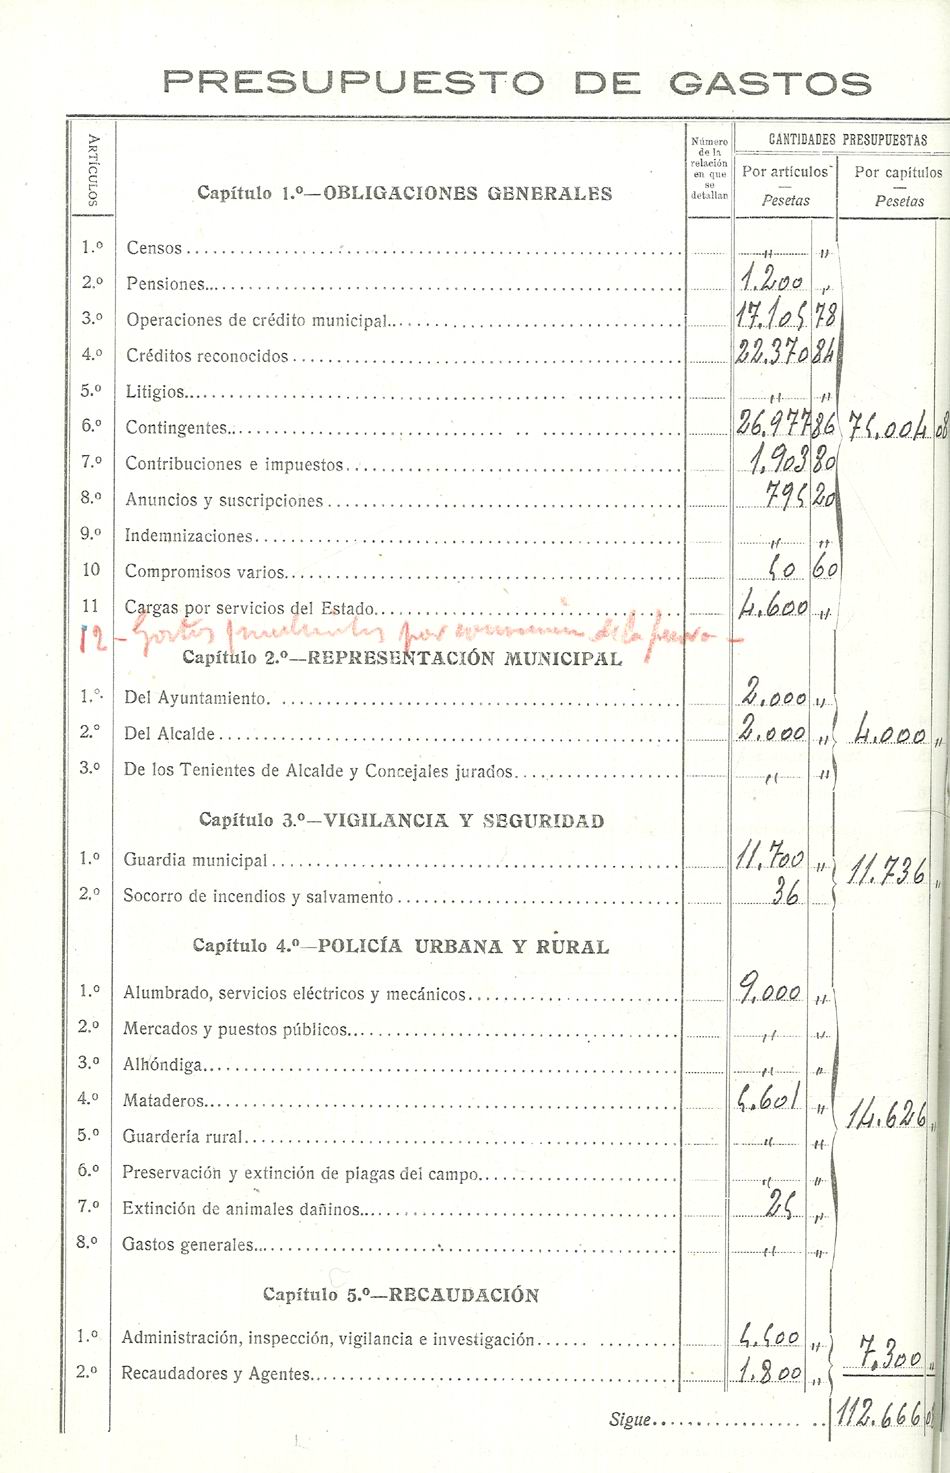 PRESUPUESTO DE GASTOS
ARTÍCULOS
Capítulo 1.º—OBLIGACIONES GENERALES
Número de la relación en que se detallan
CANTIDADES PRESUPUESTAS
Por artículos — Pesetas
Por capítulos — Pesetas
1.º Censos " "
2.º Pensiones 1.200 "
3.º Operaciones de crédito municipal 17.105 78
4.º Créditos reconocidos 22.370 84
5.º Litigios " "
6.º Contingentes 26.977 86 75.004 08
7.º Contribuciones e impuestos 1.903 80
8.º Anuncios y suscripciones 795 20
9.º Indemnizaciones " "
10 Compromisos varios 50 60
11 Cargas por servicios del Estado 4.600 "
12 - Gastos por de la -
Capítulo 2.º—REPRESENTACIÓN MUNICIPAL
1.º Del Ayuntamiento 2.000 "
2.º Del Alcalde 2.000 " 4.000 "
3.º De los Tenientes de Alcalde y Concejales jurados " "
Capítulo 3.º—VIGILANCIA Y SEGURIDAD
1.º Guardia municipal 11.700 " 11.736 "
2.º Socorro de incendios y salvamento 36
Capítulo 4.º—POLICÍA URBANA Y RURAL
1.º Alumbrado, servicios eléctricos y mecánicos 9.000 "
2.º Mercados y puestos públicos " "
3.º Alhóndiga " "
4.º Mataderos 5.601 " 14.626 "
5.º Guardería rural " "
6.º Preservación y extinción de plagas del campo " "
7.º Extinción de animales dañinos 25 "
8.º Gastos generales " "
Capítulo 5.º—RECAUDACIÓN
1.º Administración, inspección, vigilancia e investigación 5.500 " 7.300 "
2.º Recaudadores y Agentes 1.800 "
Sigue 112.666 08